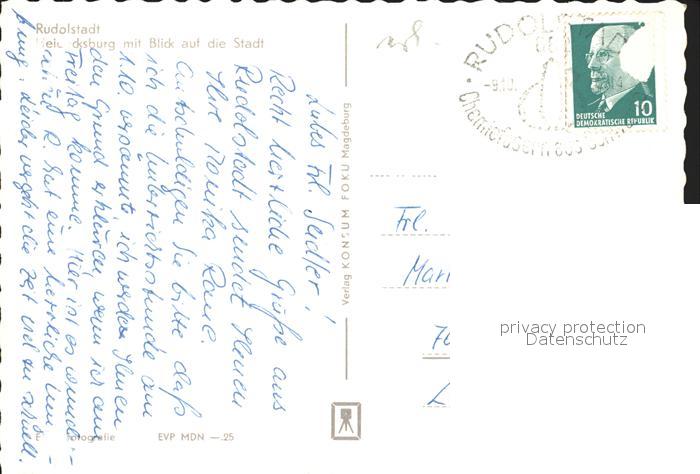 Rudolstadt
Heidecksburg mit Blick auf die Stadt
Liebes Frl. Seidler!
Recht herzliche Grüße aus
Rudolstadt sendet Ihnen
Ihre Monika
Entschuldigen Sie bitte daß
ich die Unterrichtsstunde am
1.10. versäumte, ich werde Ihnen
den Grund erklären wenn ich am
Freitag komme. Hier ist es wunder-
schön. R. hat eine herrliche Um-
gebung. Leider vergeht die Zeit viel zu schnell.
Verlag KONSUM FOKU Magdeburg
EVP MDN —.25
RUDOLSTADT
-9.10.
Chemiefasern aus
10
DEUTSCHE
DEMOKRATISCHE REPUBLIK
Frl.
Mari
70
L
privacy protection
Datenschutz